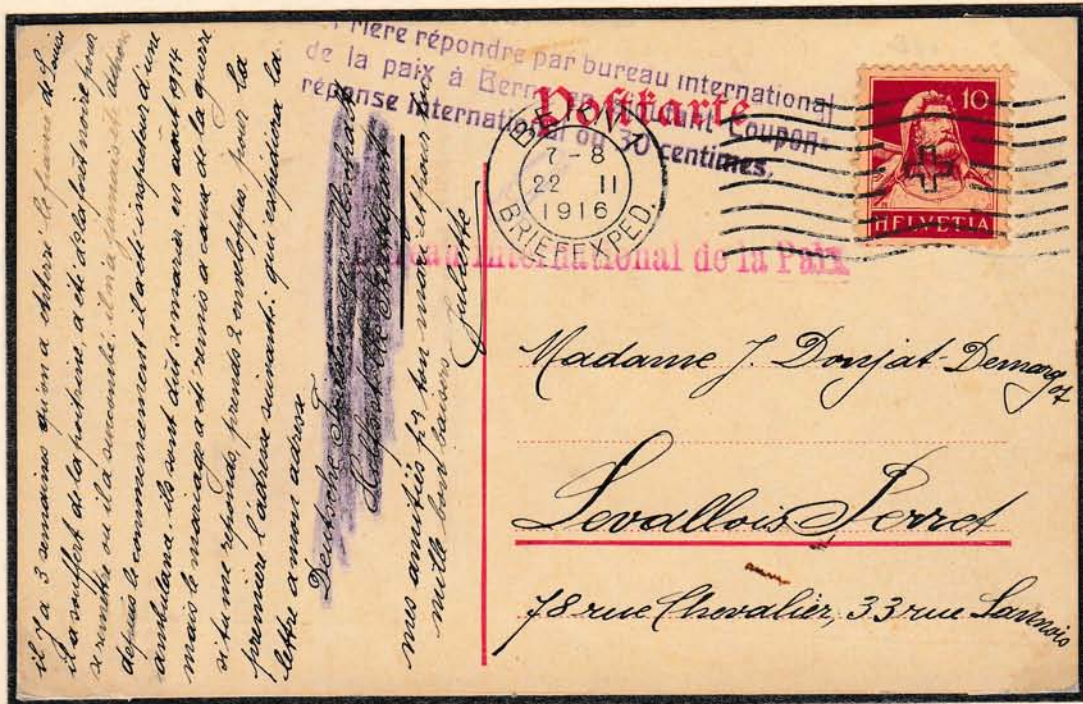 rière répondre par bureau international
de la paix à Bern
réponse international ou 30 centimes.
Postkarte
BERN 1
7-8
22 II
1916
BRIEFEXPED.
10
HELVETIA
Bureau International de la Paix
Madame J. Donjat-Demargoz
Levallois-Perret
78 rue Chevalier, 33 rue Lannois
il y a 3 semaines qu'on a enterré le fiancé de Louise
il a souffert de la poitrine, a été au pour
se remettre ou il a succombé, il n'a jamais été
depuis le commencement il a été inspecteur d'une
ambulance ils sont dût se marier en août 1914
mais le mariage a été remis a cause de la guerre
si tu me reponds, prends 2 enveloppes, pour la
premiere l'adresse suivante: qui expédiera la
lettre a mon adresse
Deutsche Friedensgesellschaft
Stuttgart
mes amitiés p. ton mari et pour toi
mille bons baisers
Juliette